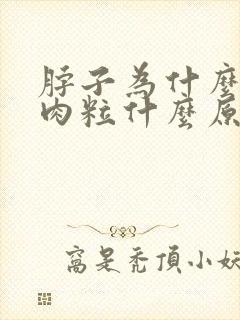 脖子為什麼
肉粒什麼原
窩是禿頂小妖